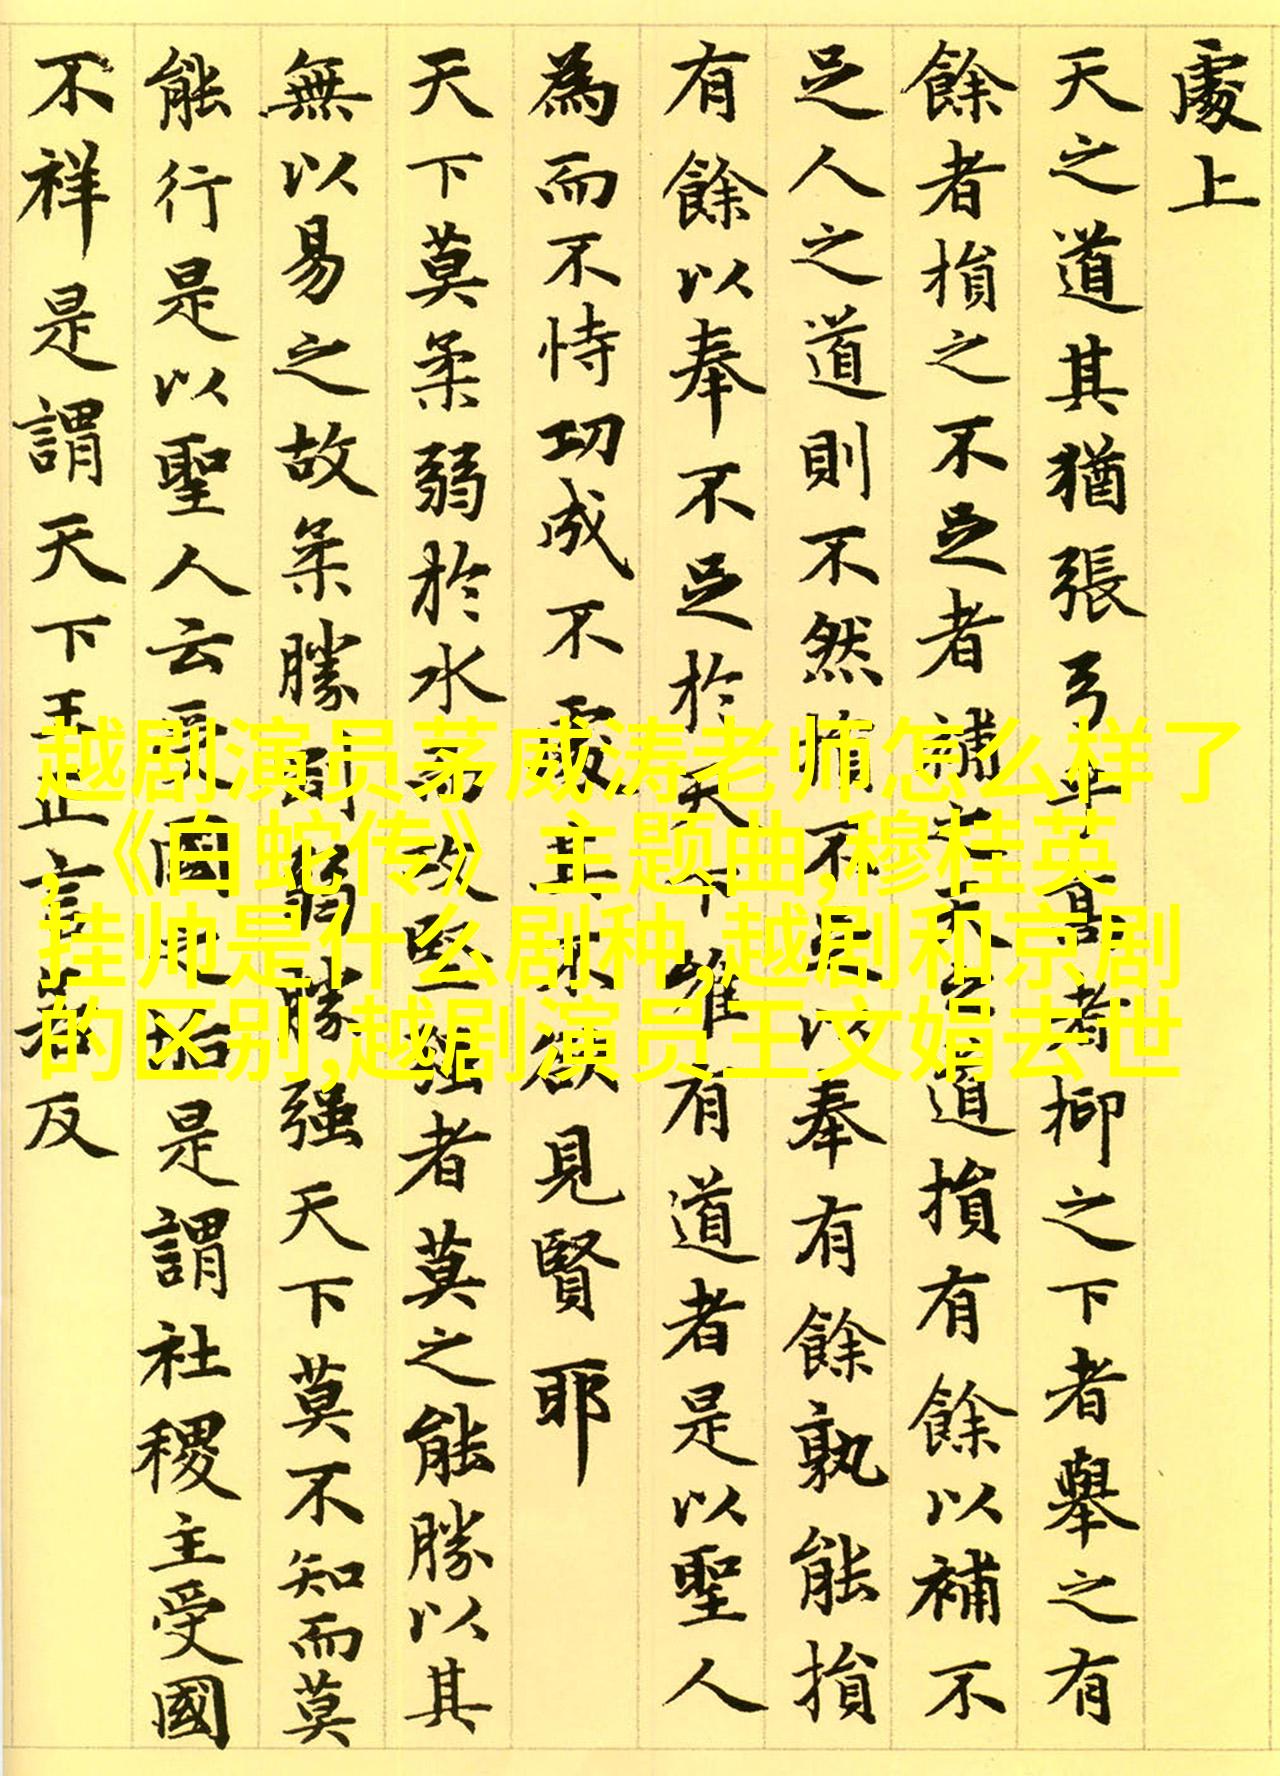 處上
天之道其猶張弓乎高者抑之下者舉之有
餘者損之不足者補之天之道損有餘以補不
足人之道則不然損不足以奉有餘孰能損
有餘以奉不足於天下唯有道者是以聖人
為而不恃功成不處其不欲見賢耶
天下莫柔弱於水而攻堅强者莫之能勝以其
無以易之故柔勝剛弱勝强天下莫不知而莫
能行是以聖人云受國之垢是謂社稷主受國
不祥是謂天下王正言若反
越剧演员茅威涛老师怎么样了
,《白蛇传》主题曲,穆桂英
挂帅是什么剧种,越剧和京剧
的区别,越剧演员王文娟去世